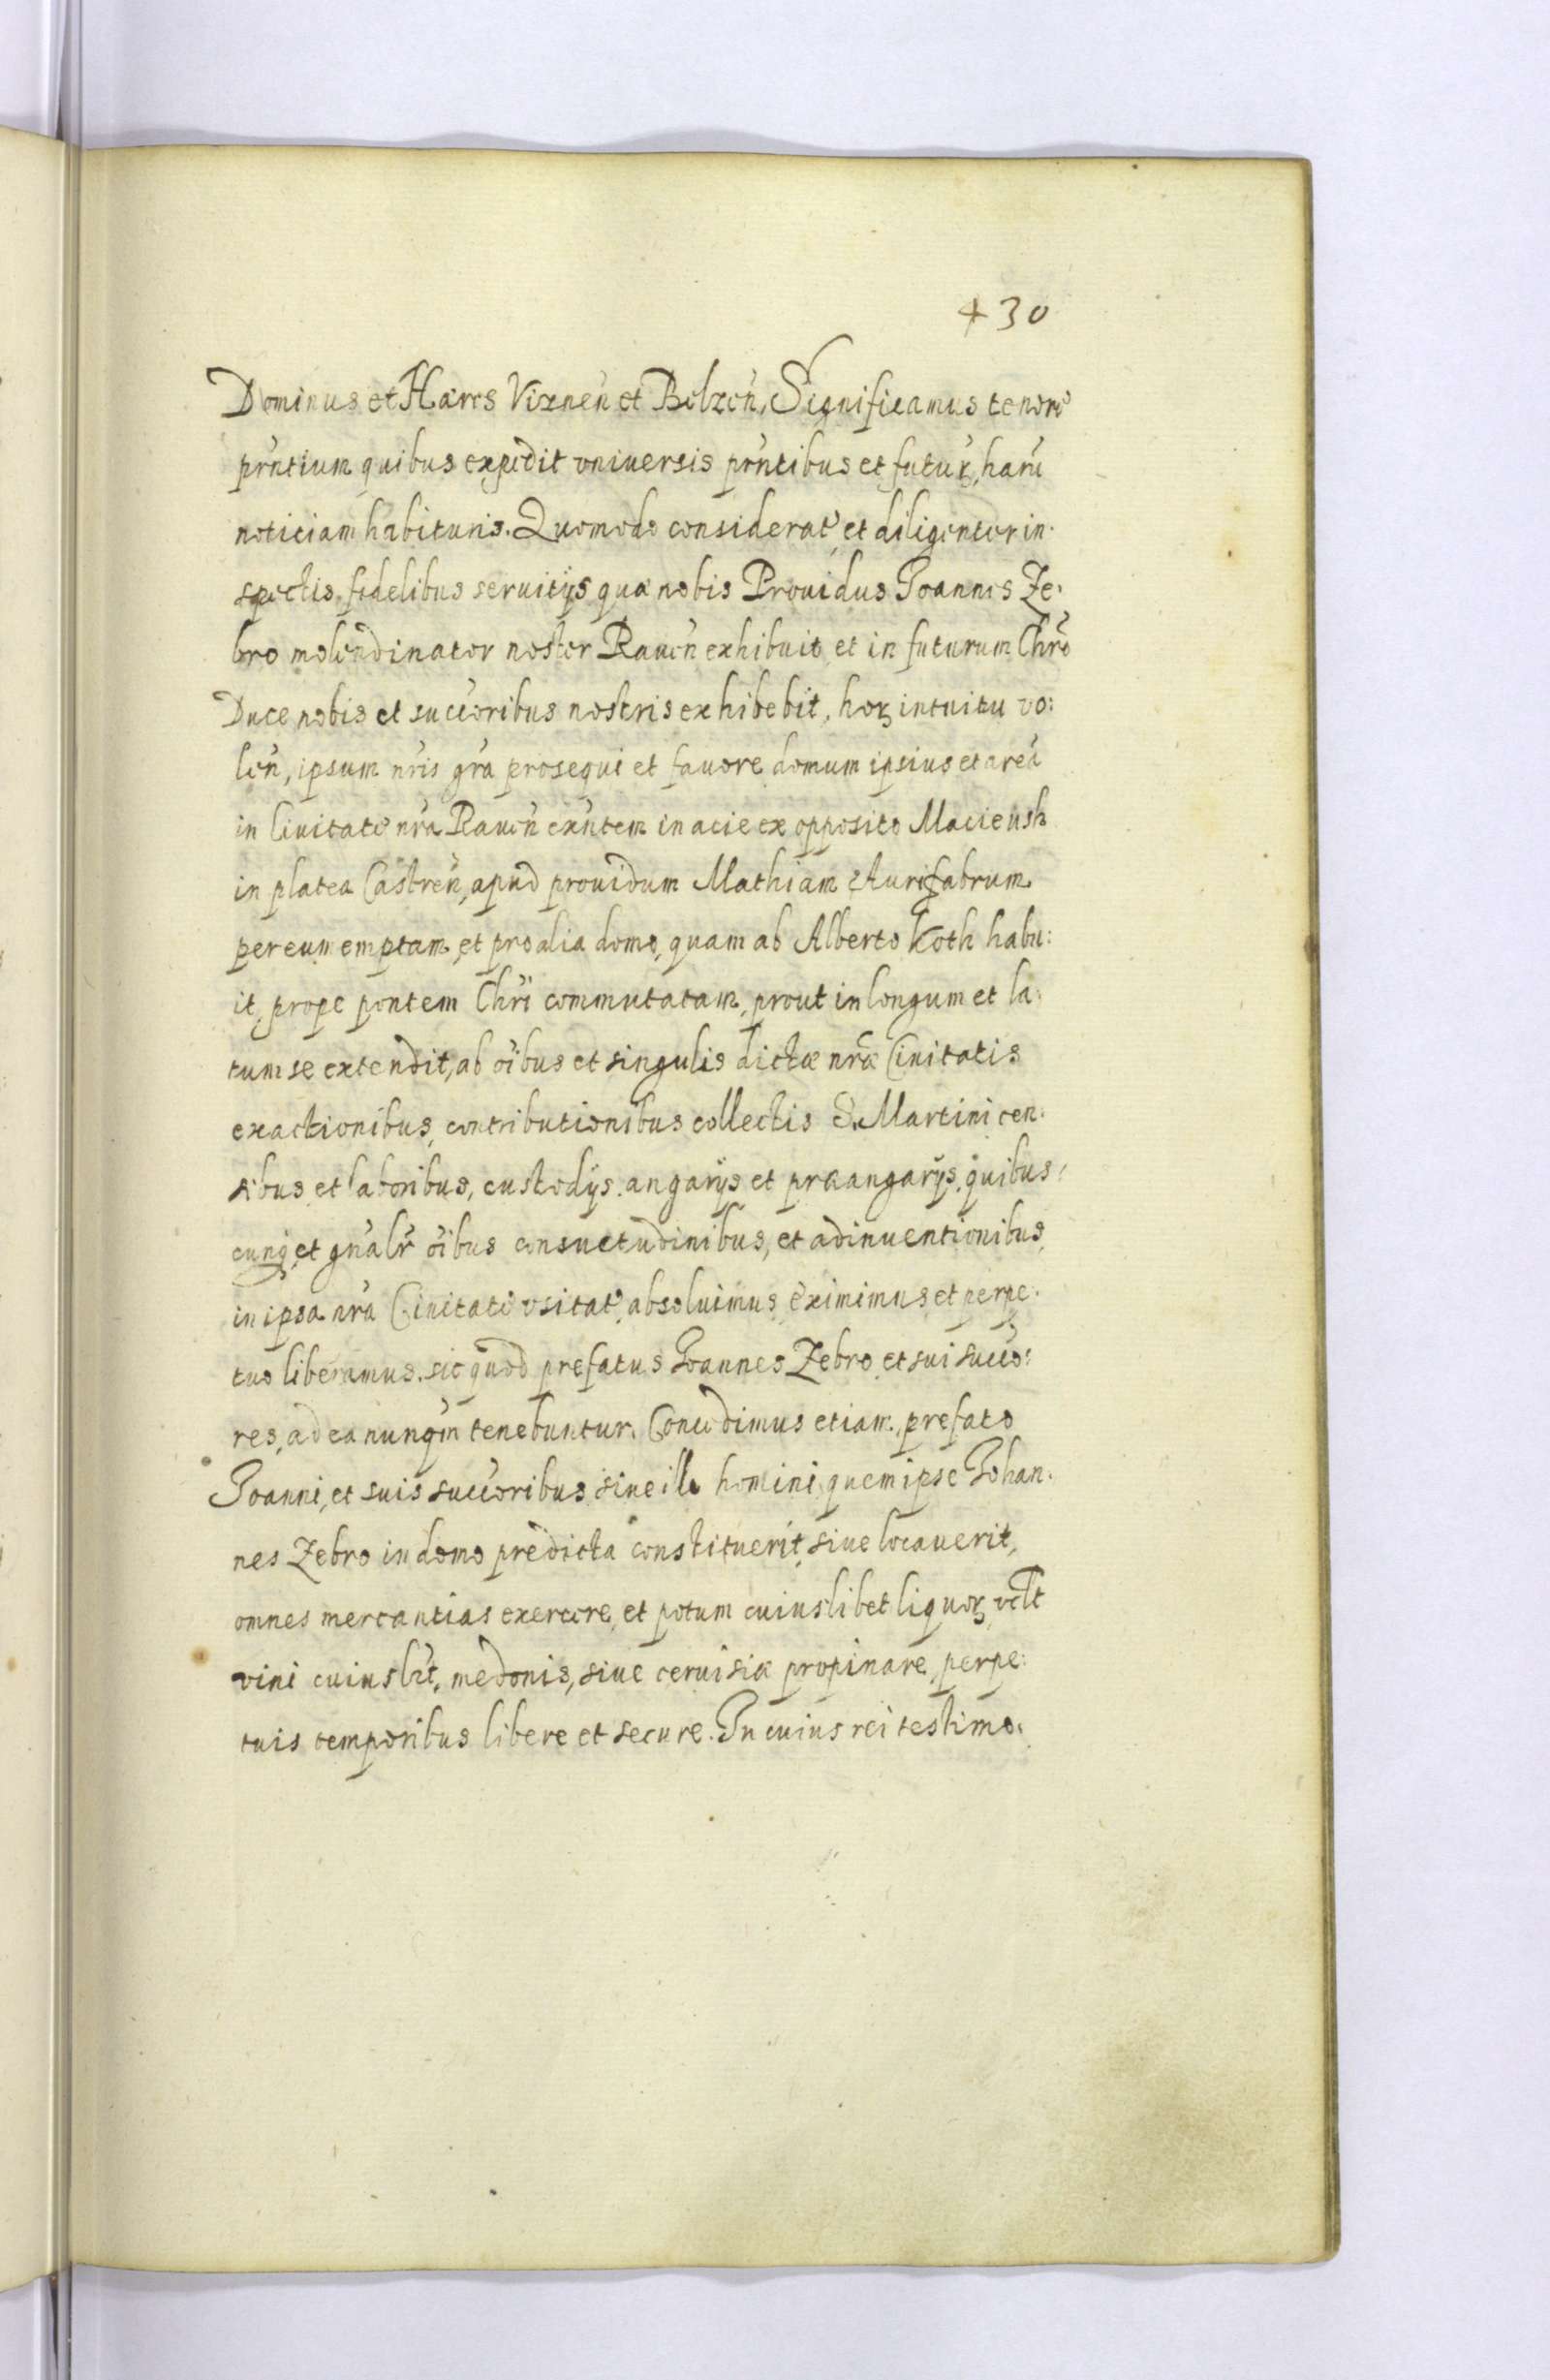 430
Dominus et Hæres Viznen̄ et Belzen̄, Significamus tenore
prn̄tium quibus expedit vniuersis prn̄tibus et futur̄, harū
noticiam habituris. Quomodo considerat̄ et diligenter in:
spectis fidelibus seruitijs quæ nobis Prouidus Joannes Ze:
bro molendinator noster Rauen̄ exhibuit et in futurum Chrō
Duce nobis et succ̄oribus nostris exhibebit, hoꝝ intuitu vo:
len̄, ipsum nr̄is gr̄a prosequi et fauore domum ipsius et areā
in Ciuitate nr̄a Rauen̄ exn̄tem in acie ex opposito Macieush
in platea Castren̄, apud prouidum Mathiam Aurifabrum
per eum emptam, et pro alia domo, quam ab Alberto Koth habu:
it, prope pontem Chrī commutatam, prout in longum et la:
tum se extendit, ab oībus et singulis dictæ nr̄æ Ciuitatis
exactionibus, contributionibus collectis S. Martini cen:
sibus et laboribus, custodijs. angarijs et præangarijs, quibus:
cunq̄, et gn̄alr̄ oībus consuetudinibus, et adinuentionibus,
in ipsa nr̄a Ciuitate vsitat̄, absoluimus eximimus et perpe:
tuo liberamus. sic quod prefatus Joannes Zebro et sui succ̄o:
res, ad ea nunqm̄ tenebuntur. Concedimus etiam, prefato
Joanni, et suis succ̄oribus siue illi homini quem ipse Johan:
nes Zebro in domo predicta constituerit, siue locauerit,
omnes mercantias exercere, et potum cuiuslibet liquoꝝ, vel̄t
vini cuiusl̄ꝫt, medonis, siue ceruisiæ propinare, perpe:
tuis temporibus libere et secure. In cuius rei testimo: